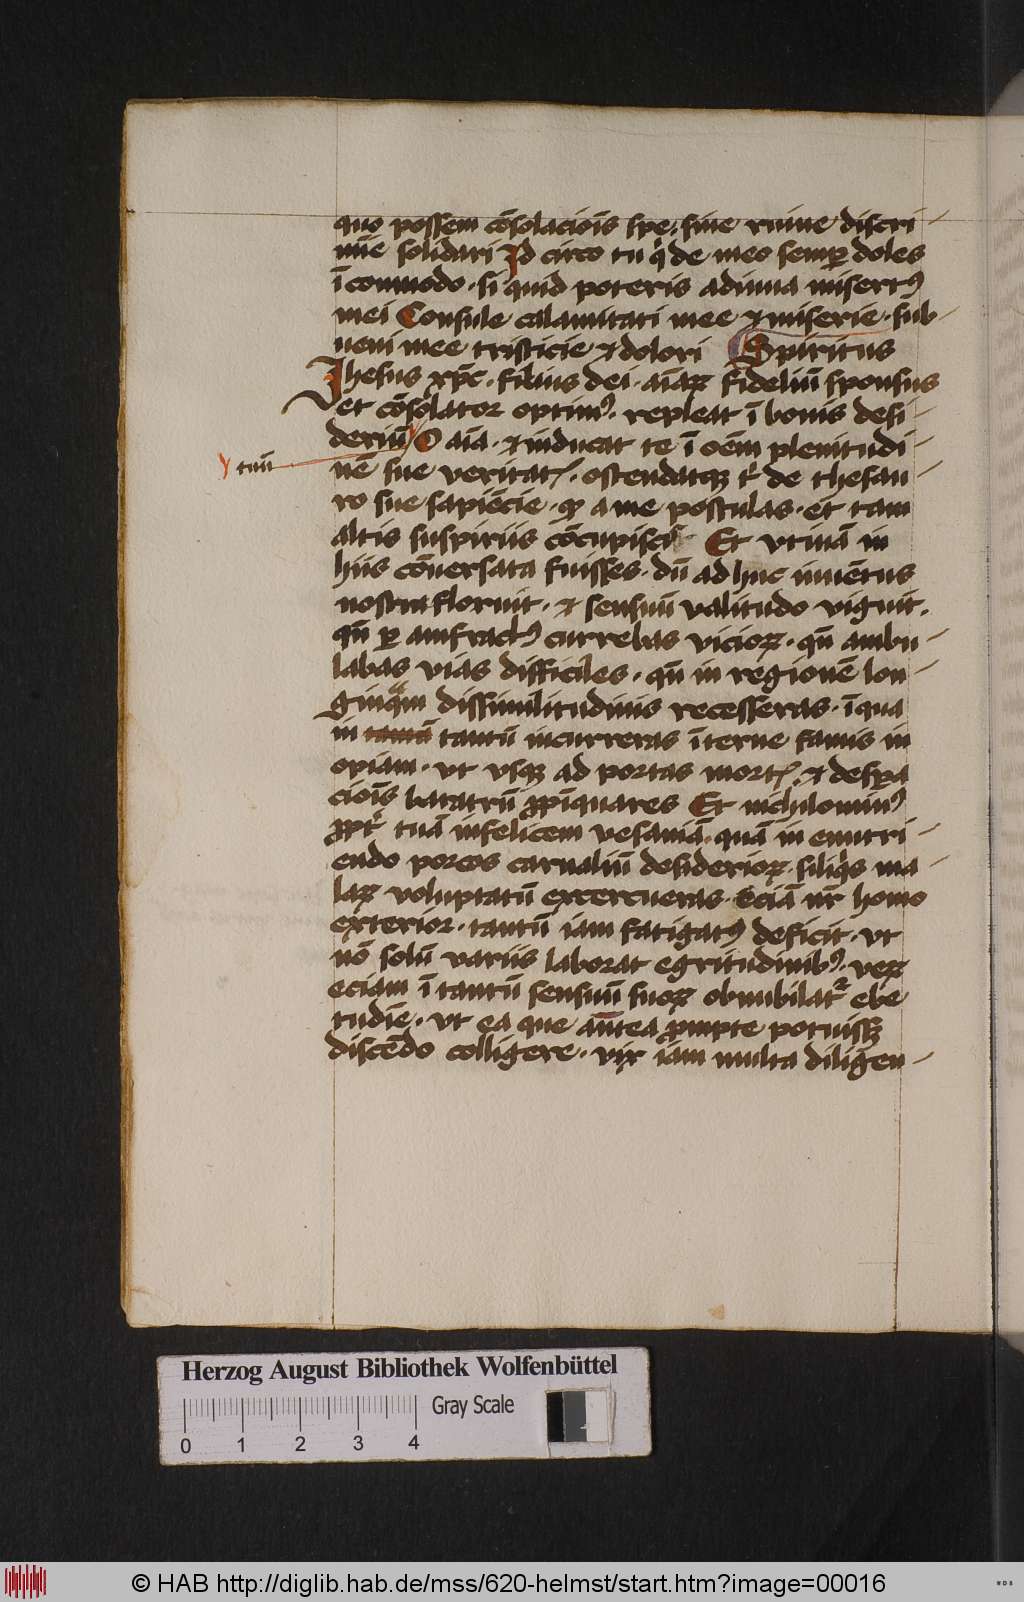 quo possem cōsolaciōis spe, sine ruine discri-
mīe solidari Id circo tu q̇ de meo semꝑ doles
ī commodo · si quid poteris adiuua misertꝰ
mei Consule calamitati mee et miserie · sub-
ueni mee tristicie et dolori Spiritus
Jhesus xp̄c · filius dei · aīaꝝ fideliū sponsus
et cōsolator optimꝰ · repleat ī bonis desi-
deriū O aīa · et inducat te ī oēm plenitudi-
tuū
nē sue veritatꝭ · ostendatqꝫ tꝭ de thesau-
ro sue sapiēcie · ꝙ a me postulas · et tam
altis suspiriis cōcupiscis Et vtinā in
hiis cōuersata fuisses · dū ad huc iuuētus
nostra floruit · et sensuū valitudo viguit ·
qn̄ ꝑ amfractꝰ currebas vicioꝝ · qn̄ ambu-
labas vias difficiles · qn̄ in regionē lon-
ginquam dissimilitudinis recesseras · ī qua
in tantū tantū incurreras īterne famis in
opiam · vt vsqꝫ ad portas mortꝭ · et despa
ciōis baratrū ꝓpīquares Et nichilominꝰ
ꝓpt̄ tuā infelicem vesaniā · quā in enutri-
endo porcos carnaliū desiderioꝝ · siliq̇s ma-
laꝝ voluptatū excercueras · Eciā nr̄ homo
exterior · tantū iam fatigatꝰ deficit · vt
nō solū variis laborat egritudinibꝰ · veꝝ
eciam ī tantū sensuū suoꝝ obnubilatr ebe
tudīe · vt ea que ān̄tea ꝓmpte potuissꝫ
discēdo colligere · vix iam multa diligen-
Herzog August Bibliothek Wolfenbüttel
Gray Scale
0 1 2 3 4
© HAB http://diglib.hab.de/mss/620-helmst/start.htm?image=00016